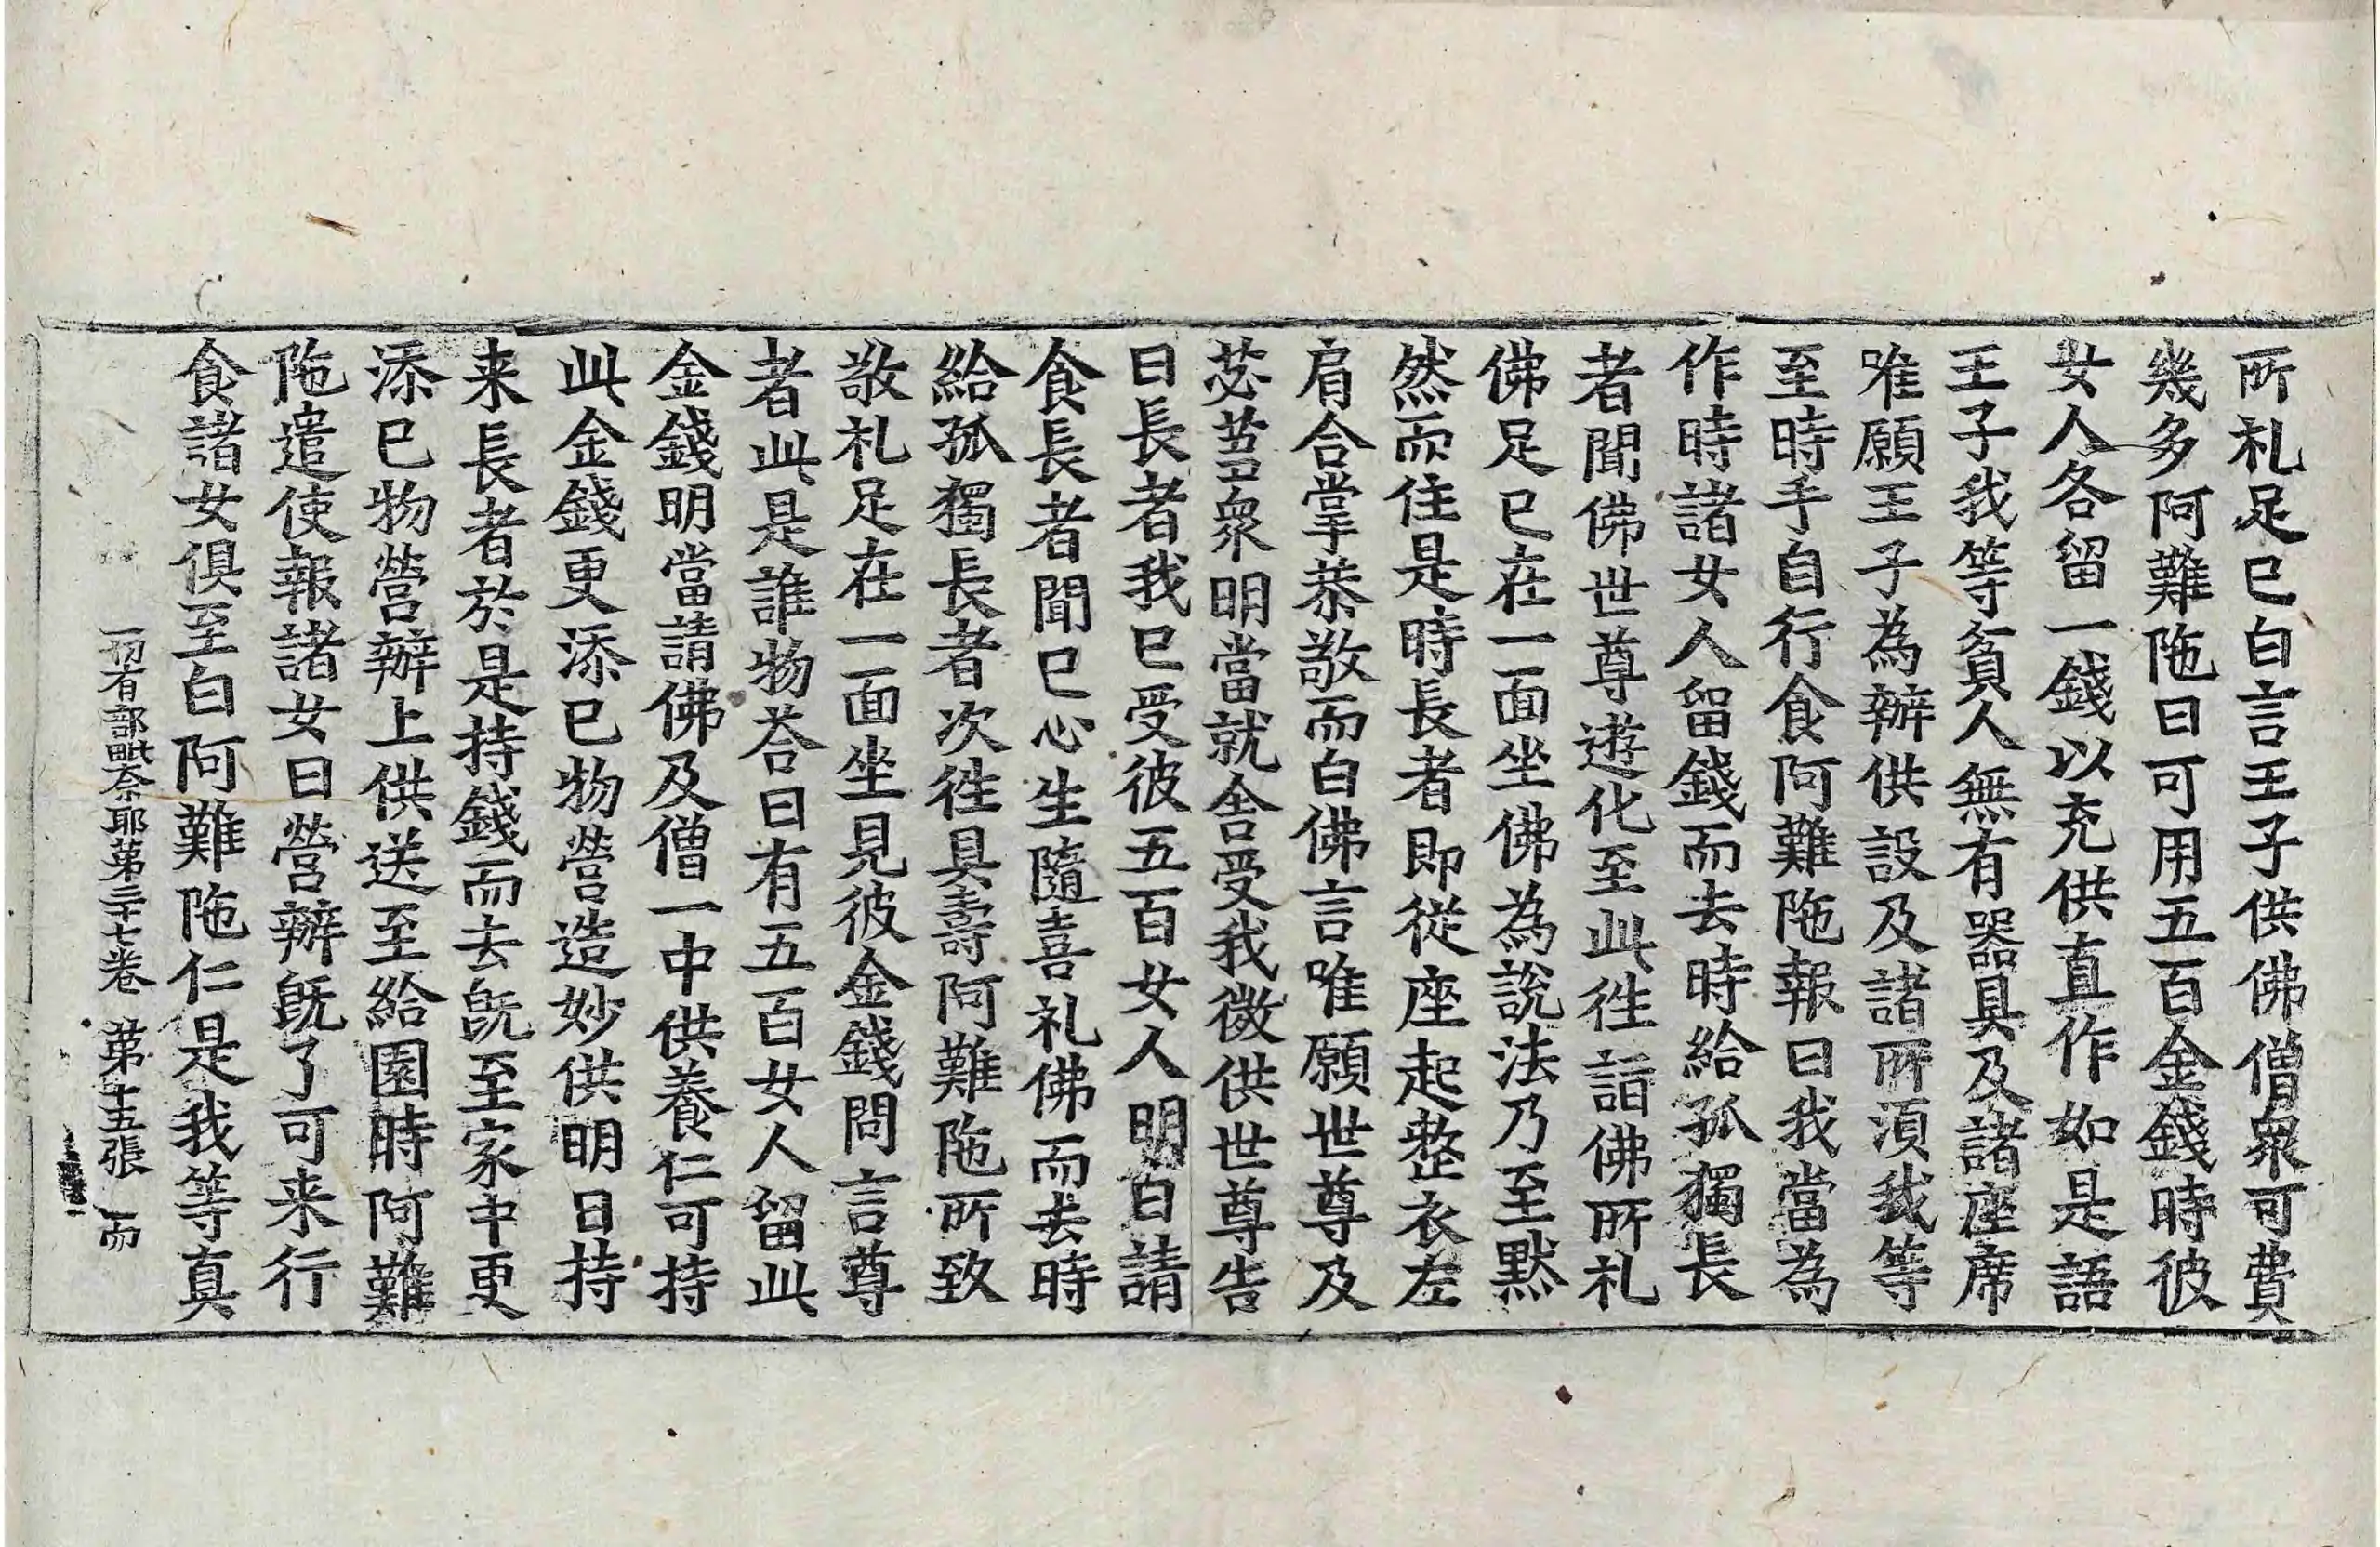 所礼足已白言王子供佛僧衆可費
幾多阿難陁曰可用五百金錢時彼
女人各留一錢以充供直作如是語
王子我等貧人無有器具及諸座席
唯願王子為辦供設及諸所湏我等
至時手自行食阿難陁報曰我當為
作時諸女人留錢而去時給孤獨長
者聞佛世尊遊化至此徃詣佛所礼
佛足已在一面坐佛為說法乃至黙
然而住是時長者即從座起整衣左
肩合掌恭敬而白佛言唯願世尊及
苾芻衆明當就舍受我微供世尊告
曰長者我已受彼五百女人明日請
食長者聞已心生隨喜礼佛而去時
給孤獨長者次徃具壽阿難陁所致
敬礼足在一面坐見彼金錢問言尊
者此是誰物荅曰有五百女人留此
金錢明當請佛及僧一中供養仁可持
此金錢更添已物營造妙供明日持
来長者於是持錢而去旣至家中更
添已物營辦上供送至給園時阿難
陁遣使報諸女曰營辦旣了可来行
食諸女俱至白阿難陁仁是我等真
一切有部毗奈耶第三十七卷 第十五張 而